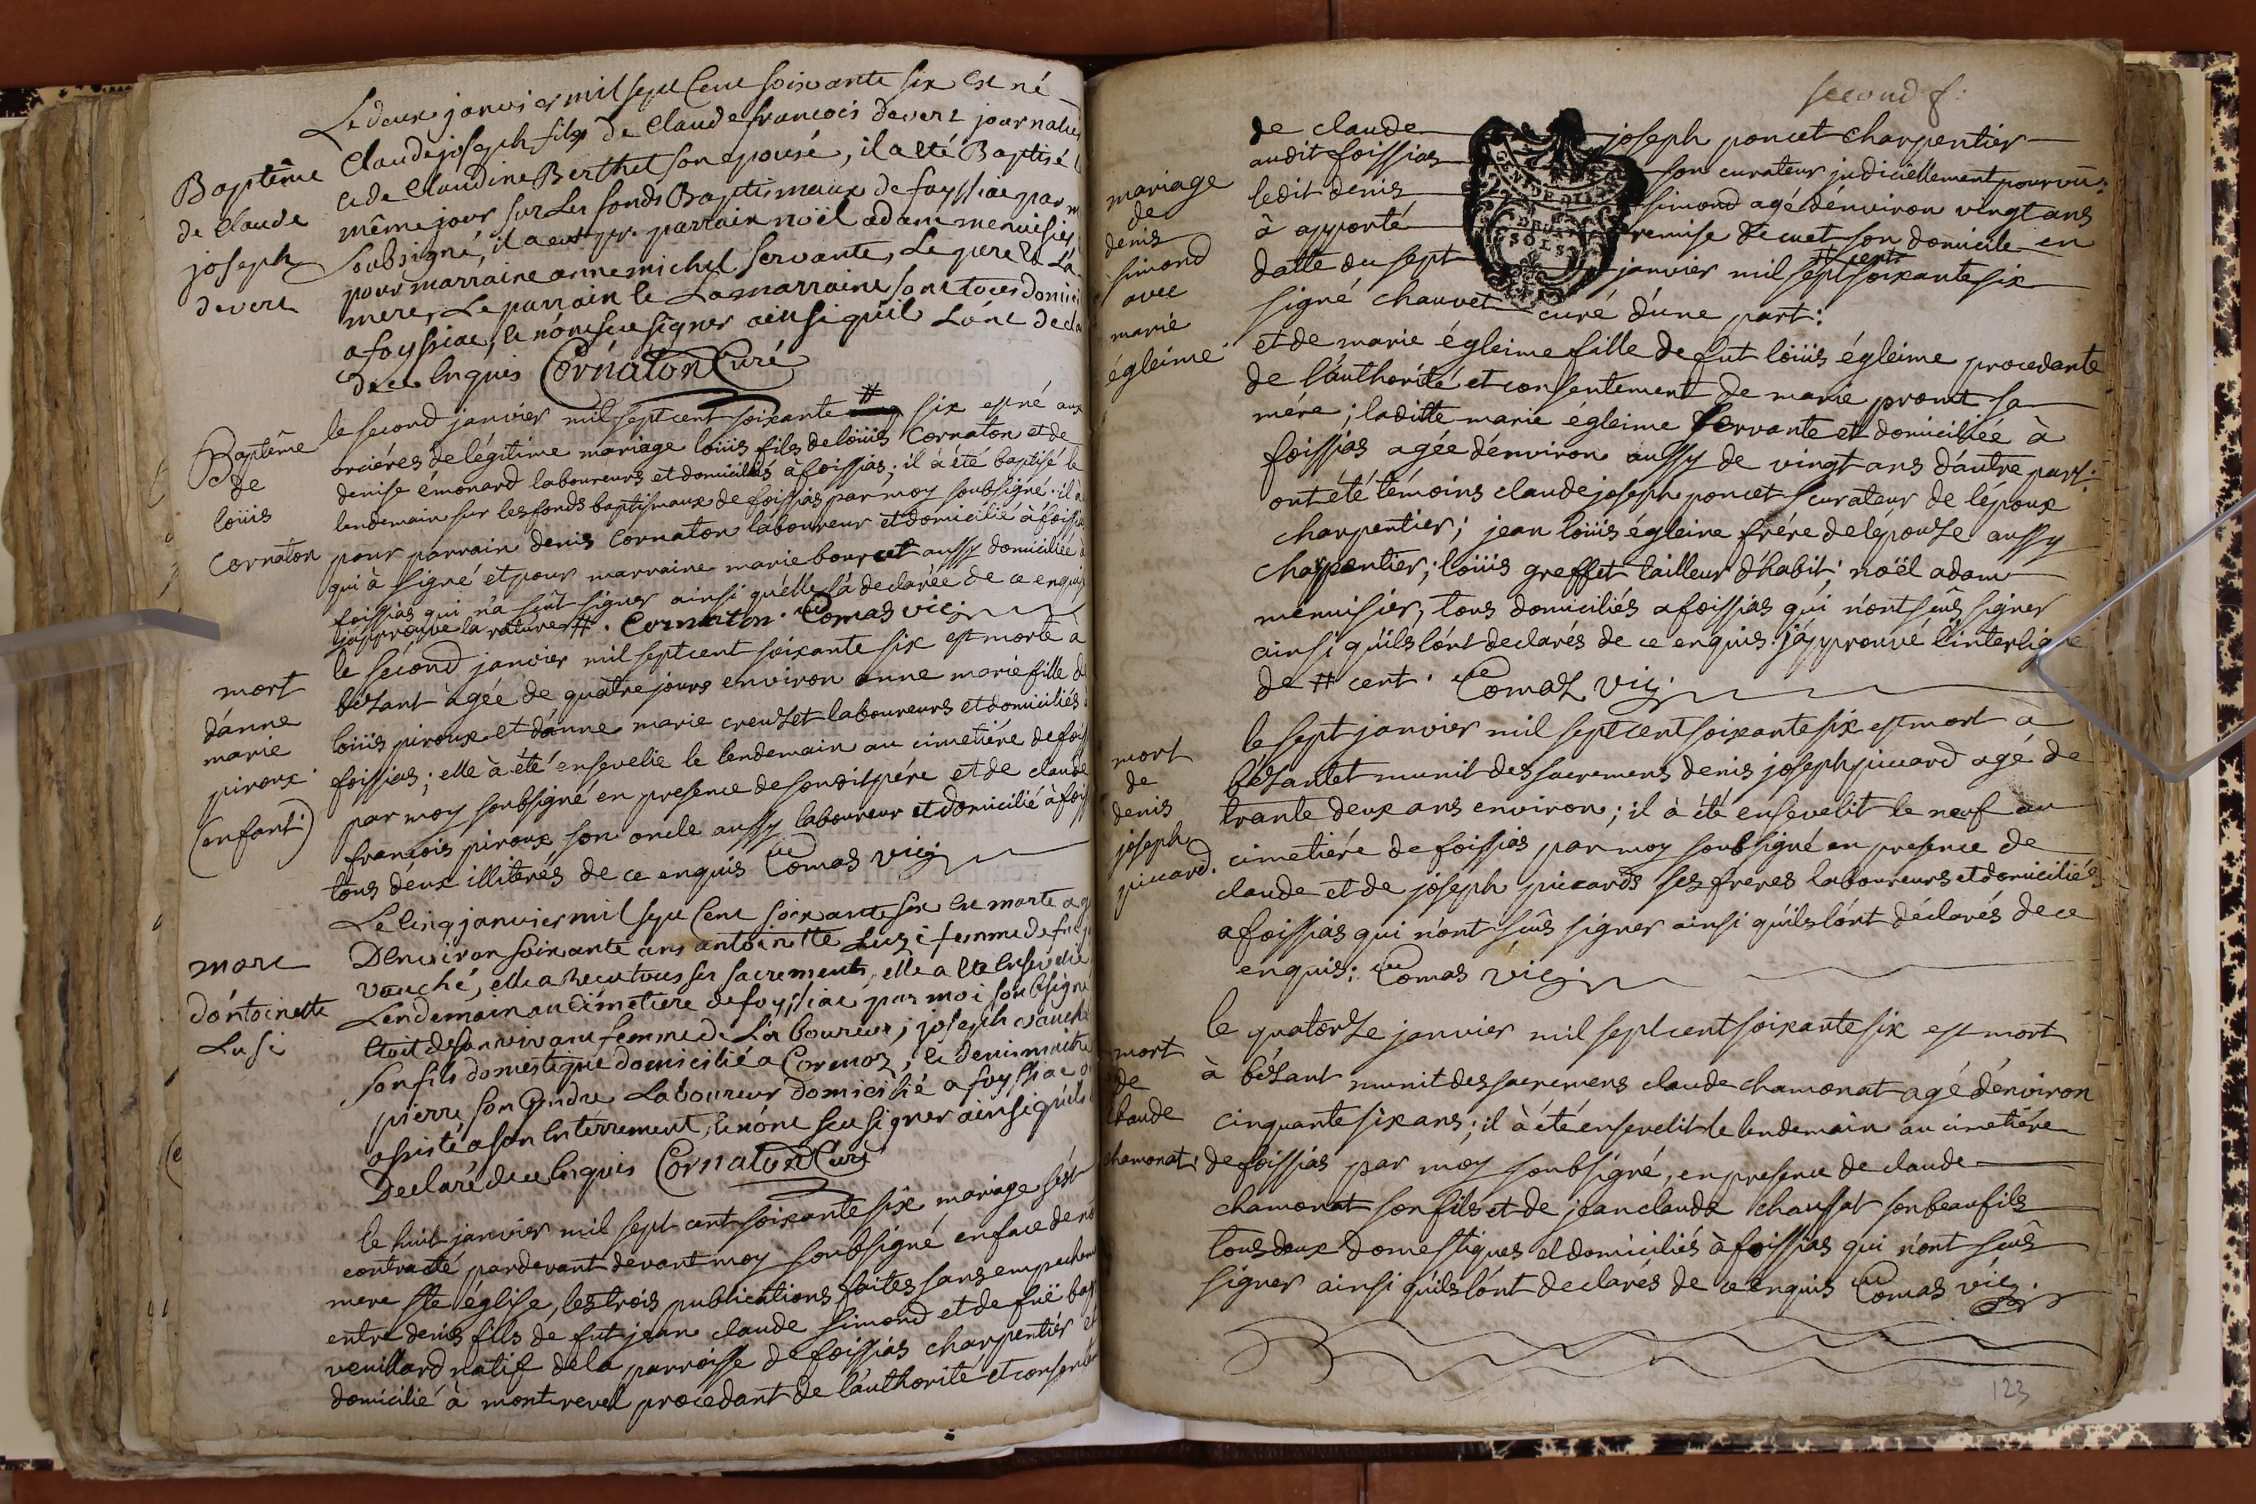 Le deux janvier mil sept Cent soixante six Est né
Baptême
de Claude
joseph
devert
Claude joseph fils de Claude francois devert journalier
et de Claudine Berthet son épouse, il a eté Baptisé le
même jour sur les fonds Baptismaux de foyssiac par m
soubsigné, il a eut pr. parrain noël adam menuisier
pour marraine anne michel servante, Le pere et La
mere, Le parrain et La marraine sont tous domici
a foyssiac, et n'ont sceu signer ainsi qu'il L'ont decla
de ce Enquis Cornaton Curé
Baptême
de
loüis
Cornaton
le second janvier mil sept cent soixante # six est né aux
orciéres de légitime mariage loüis fils de loüis Cornaton et de
denise émonard laboureurs et domiciliés à foissias; il à été baptisé le
lendemain sur les fonds baptismaux de foissias par moy soubsigné. il à
pour parrain denis Cornaton laboureur et domicilié à foissias
qui à signé et pour marraine marie bourcet aussy domiciliée à
foissias qui n'a sçût signer ainsi qu'elle l'à declarée de ce enquise
j'approuve la rature #. Cornaton. Comas vic:
mort
d'anne
marie
piroux
(enfant)
le second janvier mil sept cent soixante six est morte à
bézant agée de quatre jours environ anne marie fille de
loüis piroux et d'anne marie creuzet laboureurs et domiciliés à
foissias; elle à été ensevelie le lendemain au cimetiére de foiss
par moy soubsigné en presence de son dit pére et de claude
francois piroux son oncle aussy laboureur et domicilié à foiss
tous deux illiterés de ce enquis Comas vic:
mort
d'antoinette
Lusi
Le Cinq janvier mil sept Cent soixante six Est morte ag
D'Environ soixante ans antoinette Lusi femme de feu
vauché, elle a Recu tous ses sacrements, elle a Eté Ensevelie
Lendemain au Cimetiere de foyssiac par moi soubsigné
Etoit de son vivant femme de Laboureur; joseph vauché
son fils domestique domicilié a Cormoz, et denis maitre
pierre son Gendre Laboureur domicilié a foyssiac o
assisté a son Enterrement, et n'ont sceu signer ainsi qu'ils
Declaré de ce Enquis Cornaton Curé
le huit janvier mil sept cent soixante six mariage s'est
contracté pardevant devant moy soubsigné en face de no
mere ste église, les trois publications faites sans empechem
entre denis fils de fut jean claude simond et de fuë
veuillard natif de la parroisse de foissias charpentier et
domicilié à montrevel procedant de l'authorité et consente
second f:
mariage
de
denis
simond
avec
marie
égleime
de claude joseph poncet charpentier
audit foissias son curateur judiciellement pourvu:
ledit denis simond agé d'environ vingt ans
à apporté remise de cuet son domicile en
datte du sept janvier mil sept # cents soixante six
signé chauvet curé d'une part:
GEN. DE DIJON
DEUX
SOLS
et de marie égleime fille de fut loüis égleime procedante
de l'authorité et consentement de marie promt sa
mére; laditte marie egleime servante et domiciliée à
foissias agée d'environ aussy de vingt ans d'autre part:
ont été témoins claude joseph poncet curateur de l'époux
charpentier; jean loüis égleine frére de lépouze aussy
charpentier; loüis greffet tailleur d'habit; noël adam
menuisier, tous domiciliés a foissias qui n'ont sçûs signer
ainsi qu'ils l'ont declarés de ce enquis. j'approuve l'interligne
de # cent. Comas vic:
mort
de
denis
joseph
piccard.
le sept janvier mil sept cent soixante six est mort a
bézantet munit des sacremens denis joseph piccard agé de
trante deux ans environ; il à été ensevelit le neuf au
cimetiére de foissias par moy soubsigné en presence de
claude et de joseph piccards ses freres laboureurs et domiciliés
a foissias qui n'ont sçûs signer ainsi qu'ils l'ont déclarés de ce
enquis: Comas vic:
mort
de
claude
chamonat:
le quatorze janvier mil sept cent soixante six est mort
à bézant munit des sacremens claude chamonat agé d'environ
cinquante six ans; il à été ensevelit le lendemain au cimetiére
de foissias par moy soubsigné, en presence de claude
chamonat son fils et de jean claude chaussat son beau fils
tous deux domestiques et domiciliés à foissias qui n'ont sçûs
signer ainsi qu'ils l'ont declarés de ce enquis Comas vic.
123